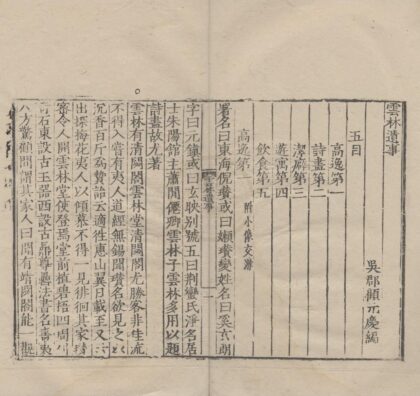 雲林遺事
吳郡顧元慶編
五目
高逸第一
詩畫第二
潔癖第三
遊寓第四
飲食第五
高逸第一
署名曰東海倪瓚或曰嬾瓚變姓名曰奚玄朗
字曰元鎮或曰玄暎別號五曰荆蠻氏淨名居
士朱陽館主蕭閒僊卿雲林子雲林多用以題
詩畫故尤著
雲林有清閟閣雲林堂清閟閣尤勝客非佳流
不得入嘗有夷人道經無錫聞瓚名欲見之以
沉香百斤爲贄紿云適往惠山翼日載至又云
出探梅花夷人以傾慕不得一見徘徊其家瓚
密令人開雲林堂使登焉堂前植碧梧四周列
奇石東設古玉器西設古鼎尊罍法書名畫夷
人方驚顧問謂其家人曰聞有清閟閣能一觀